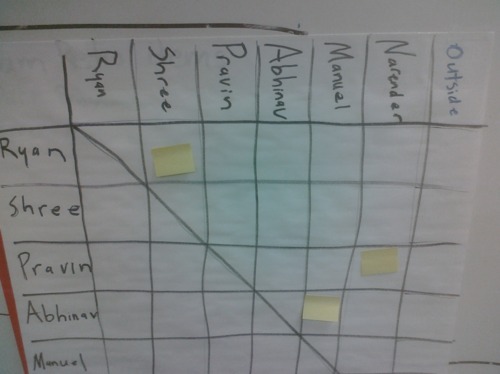 Ryan
Shree
Pravin
Abhinav
Manuel
Narender
Outside
Ryan
Shree
Pravin
Abhinav
Manuel